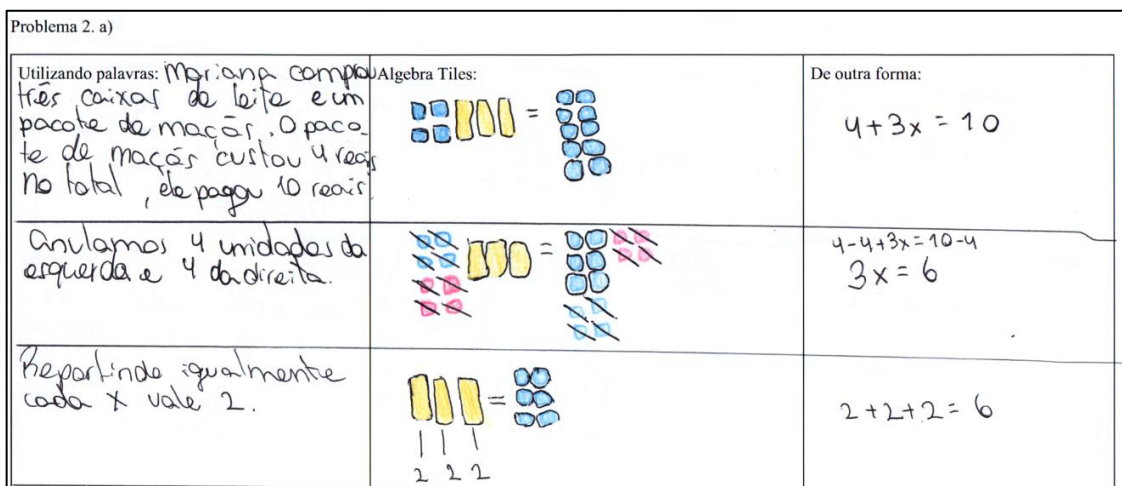 Problema 2. a)
Utilizando palavras: Mariana comprou
três caixas de leite e um
pacote de maçãs. O paco-
te de maçãs custou 4 reais
No total, ela pagou 10 reais.
Algebra Tiles:
=
De outra forma:
4 + 3x = 10
Anulamos 4 unidades da
esquerda e 4 da direita.
=
4-4+3x=10-4
3x = 6
Repartindo igualmente
cada x vale 2.
=
2 2 2
2+2+2=6